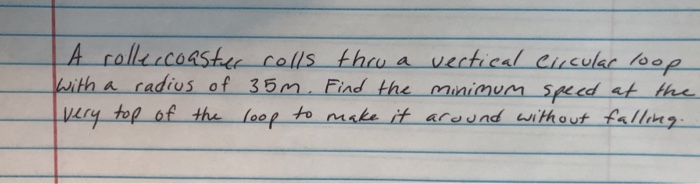 A rollercoaster rolls thru a vertical circular loop
with a radius of 35m. Find the minimum speed at the
very top of the loop to make it around without falling.